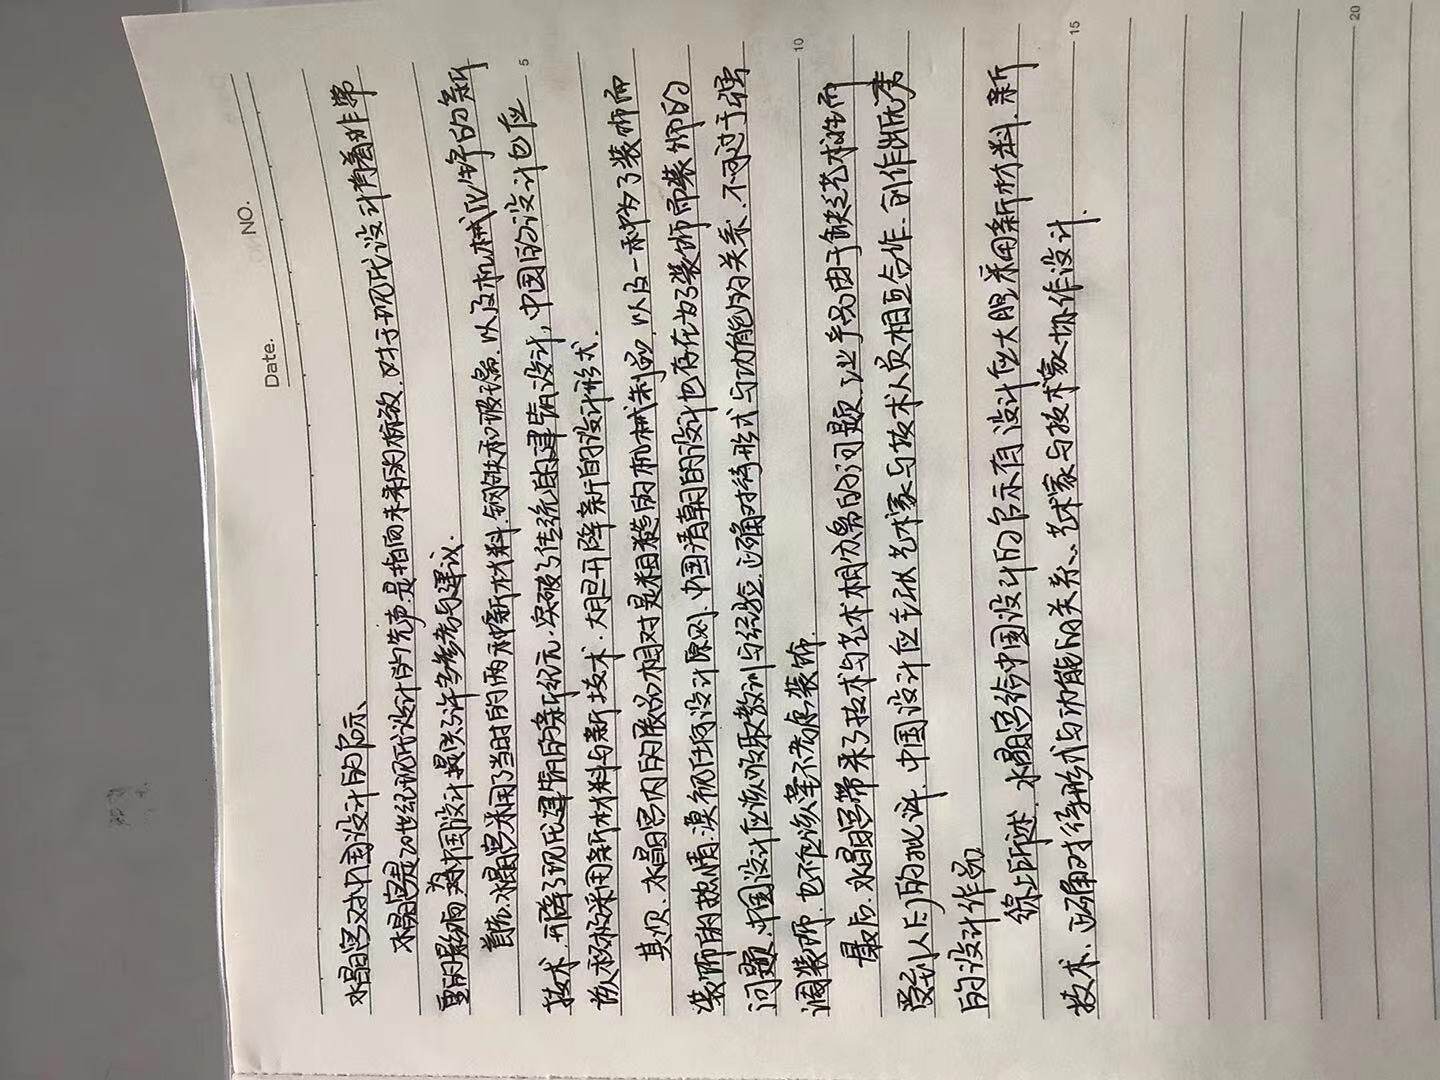 NO.
Date.
水晶宫对中国设计的启示、
水晶宫是20世纪现代设计的先声.是指向未来的标致.对于现代设计有着非常
重的影响.为中国设计提供了许多参考与建议.
首先.水晶宫采用了当时的两种新材料.钢铁和玻璃.以及机械化生产的新
技术.开降了现代建筑的新纪元.突破了传统的建筑设计,中国的设计也应
该积极采用新材料与新技术.大胆开降新的设计形式.
其次.水晶宫内的展品相对是粗糙的机械制品.以及一种为了装饰而
装饰的热情.漠视任何设计原则.中国清朝的设计也存在为了装饰而装饰的
问题.中国设计应该吸取教训与经验.正确对待形式与功能的关系.不可过于强
调装饰.也不应该毫不考虑装饰.
最后.水晶宫带来了技术与艺术相分离的问题.工业产品由于缺乏艺术性而
受到人们的批评.中国设计应重视艺术家与技术人员相互合作.创作出优秀
的设计作品
综上所述.水晶宫给中国设计的启示有设计应大胆采用新材料.新
技术.正确对待形式与功能的关系、艺术家与技术家协作设计.
5
10
15
20